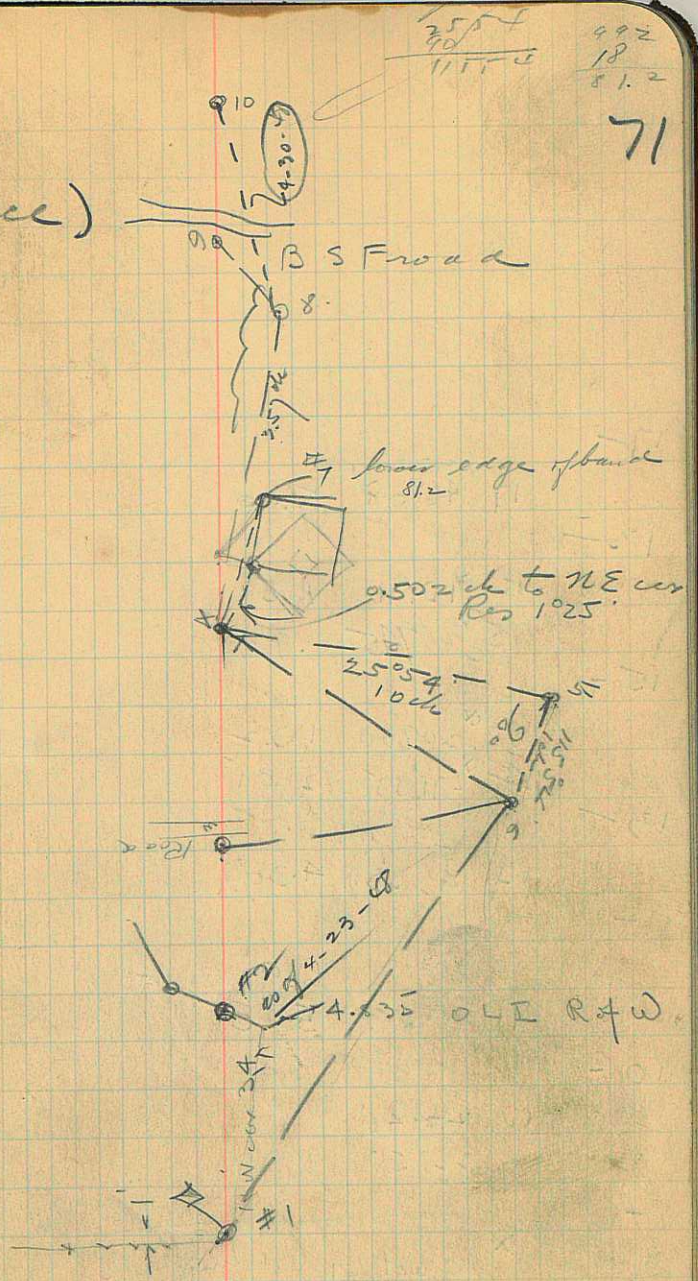 25 54
90
115 54
992
18
81.2
71
10
4-30-
9
B S F road
8
3.5
#7 lower edge of band
81.2
0.502 ch to NE cor
Res 1°25'
4
25°54
10 ch
5
90°
115°54
3
Road
#2
4-23-48
4.835 OLI R of W
N W cor 34
#1